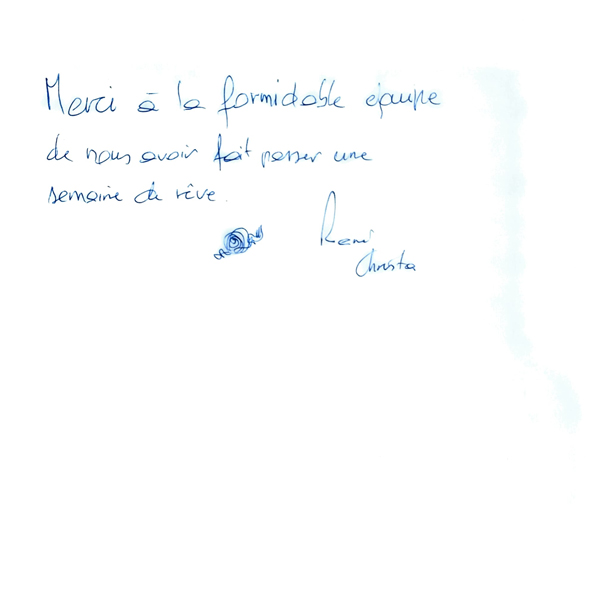 Merci à la formidable équipe
de nous avoir fait passer une
semaine de rêve.
René
Christa